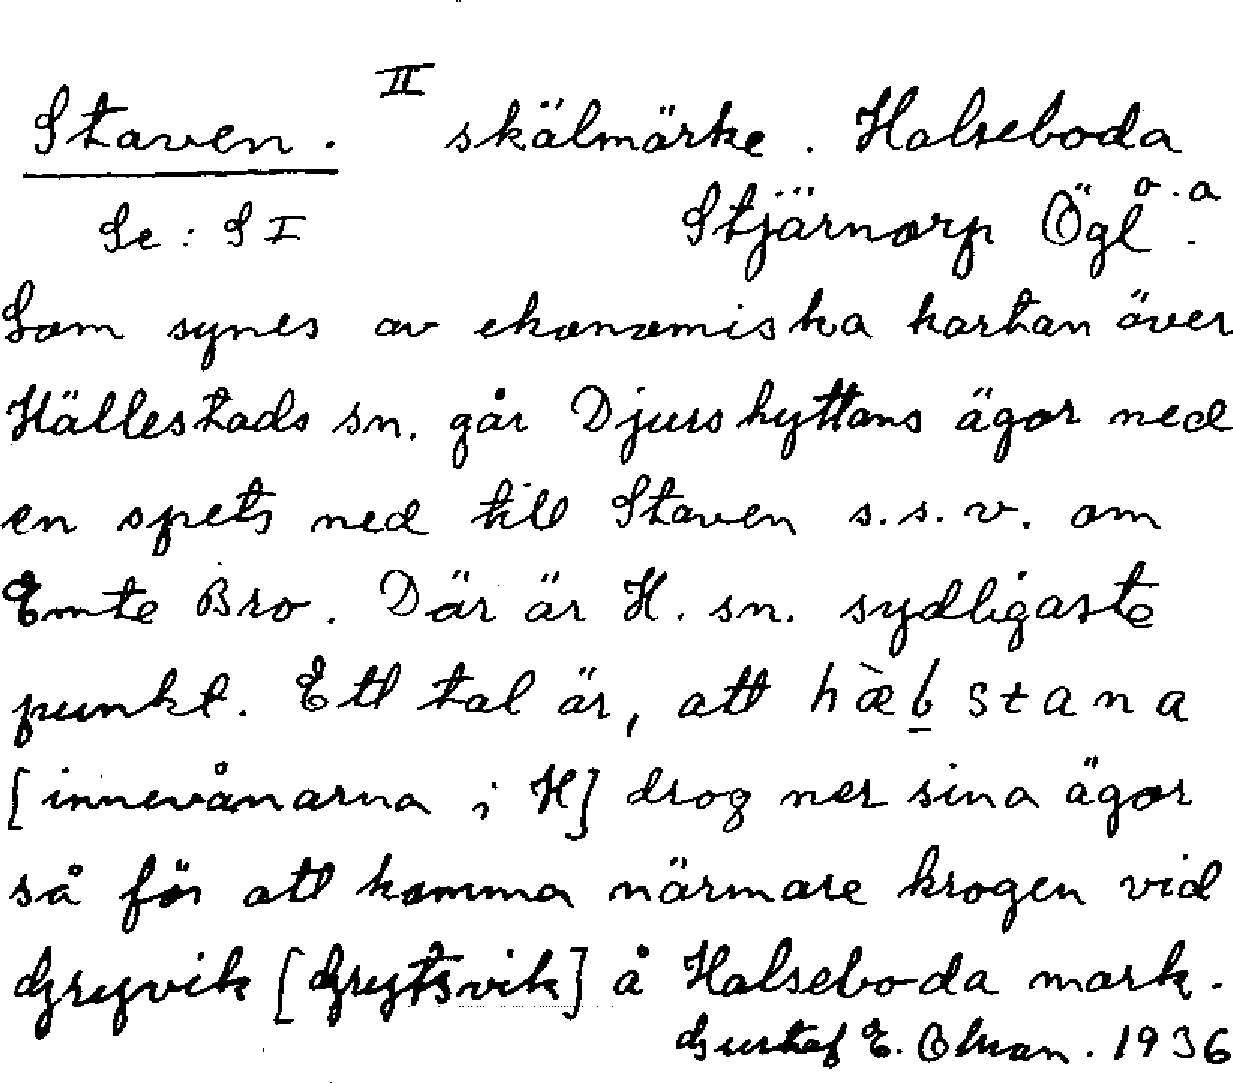 Staven. II skälmärke. Halseboda
Se: S I Stjärnorp Ögl. o. a.
Som synes av ekonomiska kartan över
Hällestads sn. går Djurshyttans ägor ned
en spets ned till Staven s.s.v. om
Emte Bro. Där är H. sn. sydligaste
punkt. Ett tal är, att hæ̀b̲stana
[innevånarna i H] drog ner sina ägor
så för att komma närmare krogen vid
Gryvik [Grytsvik] å Halseboda mark.
Gustaf E. Olson. 1936